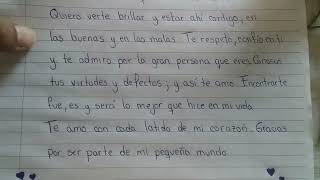 Quiero verte brillar y estar ahí contigo, en
las buenas y en las malas. Te respeto, confío en ti
y te admiro por la gran persona que eres. Conozco
tus virtudes y defectos; y así te amo. Encontrarte
fue, es y será lo mejor que hice en mi vida
Te amo con cada latido de mi corazón. Gracias
por ser parte de mi pequeño mundo.